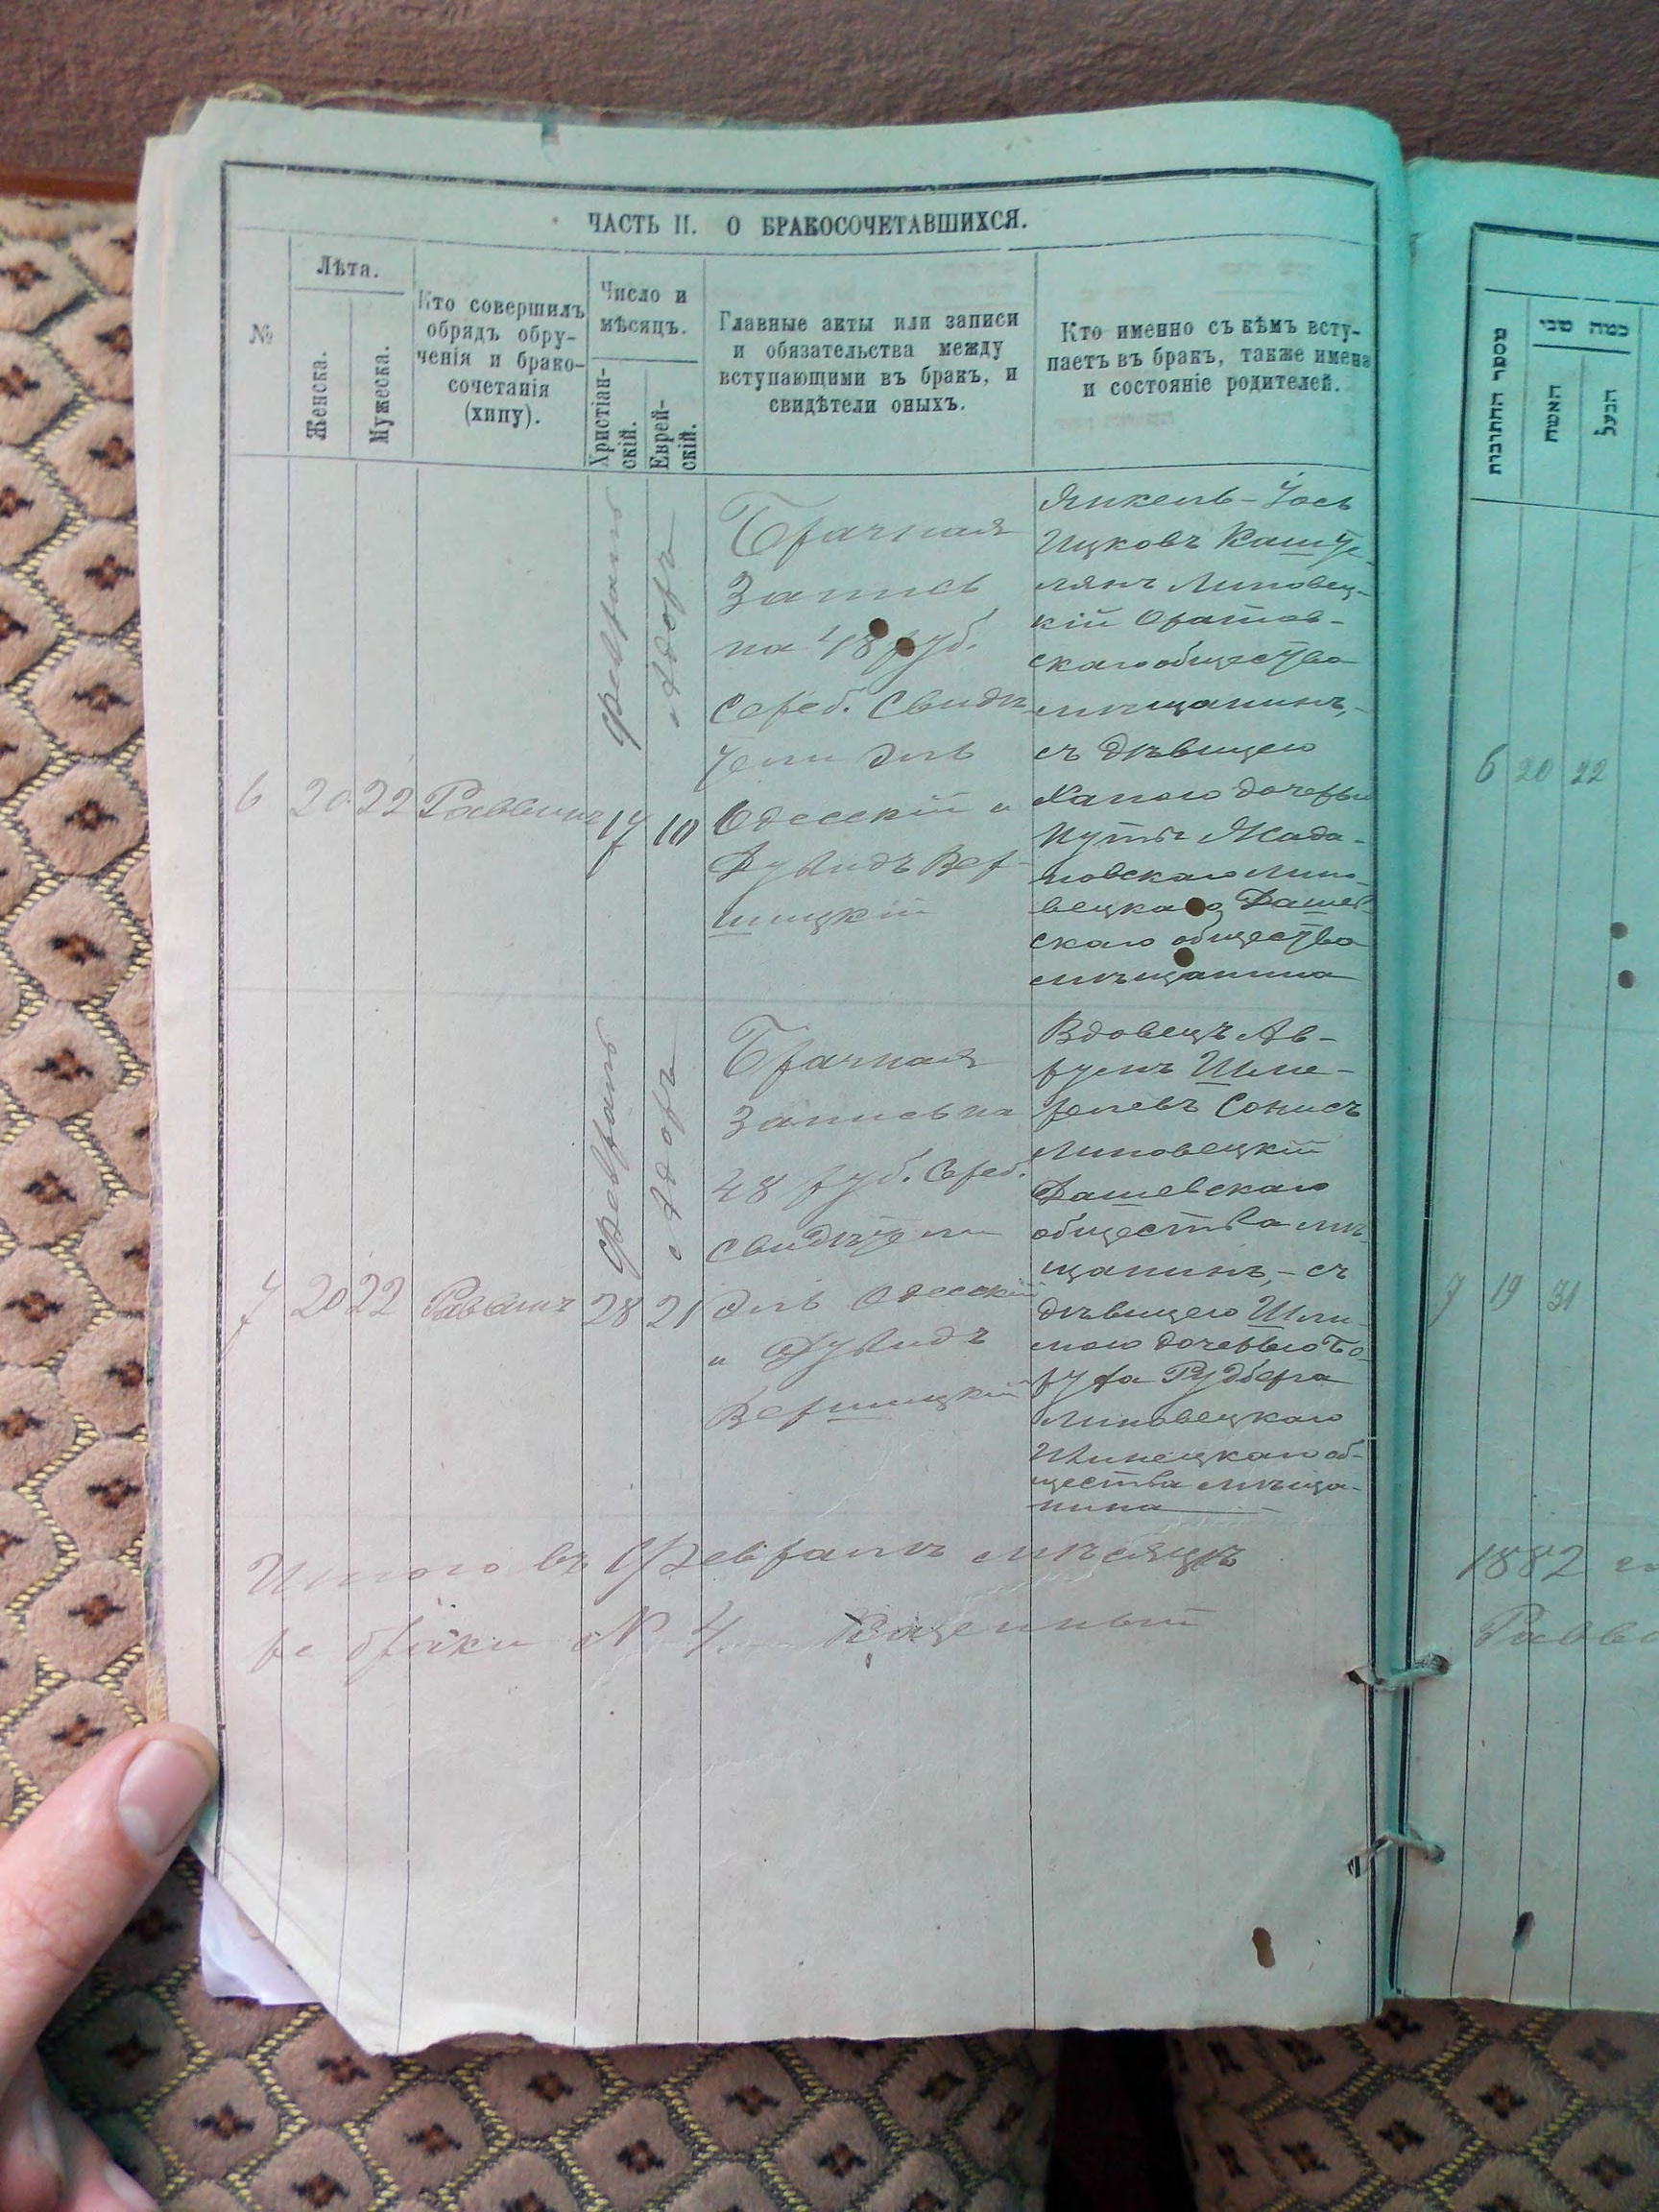 ЧАСТЬ II. О БРАКОСОЧЕТАВШИХСЯ.
№
Лѣта.
Женска.
Мужеска.
Кто совершилъ
обрядъ обру-
ченія и брако-
сочетанія
(хипу).
Число и
мѣсяцъ.
Христіан-
скій.
Еврей-
скій.
Главные акты или записи
и обязательства между
вступающими въ бракъ, и
свидѣтели оныхъ.
Кто именно съ кѣмъ всту-
паетъ въ бракъ, также имена
и состояніе родителей.
6
20
22
Раввинъ
Февраль
17
Адоръ
10
Брачная
Запись
на 48 руб.
сереб. Свидѣ
тели Эль
Одесскій и
Дувидъ Вер-
шицкій
Янкель-Іось
Ицковъ Каште-
лянъ Липовец-
кій Оратов-
скаго общества
мѣщанинъ,-
съ дѣвицею
Ханою дочерью
Нуты Жада-
новскаго Липо-
вецкаго Дашев-
скаго общества
мѣщанина
7
20
22
Раввинъ
Февраль
28
Адоръ
21
Брачная
Запись на
48 руб. Сереб.
свидѣтели
Эль Одесскій
и Дувидъ
Вершицкій
Вдовецъ Ав-
румъ Шме-
релевъ Сонисъ
Липовецкій
Дашевскаго
общества мѣ-
щанинъ,- съ
дѣвицею Шли-
мою дочерью Бо-
руха Рудбера
Липовецкаго
общества мѣща-
нина
Итого въ Февралѣ мѣсяцѣ
браки № 4. Казенный
מספר החתונות
כמה שני
האשה
הבעל
6 20 22
7 19 31
1882